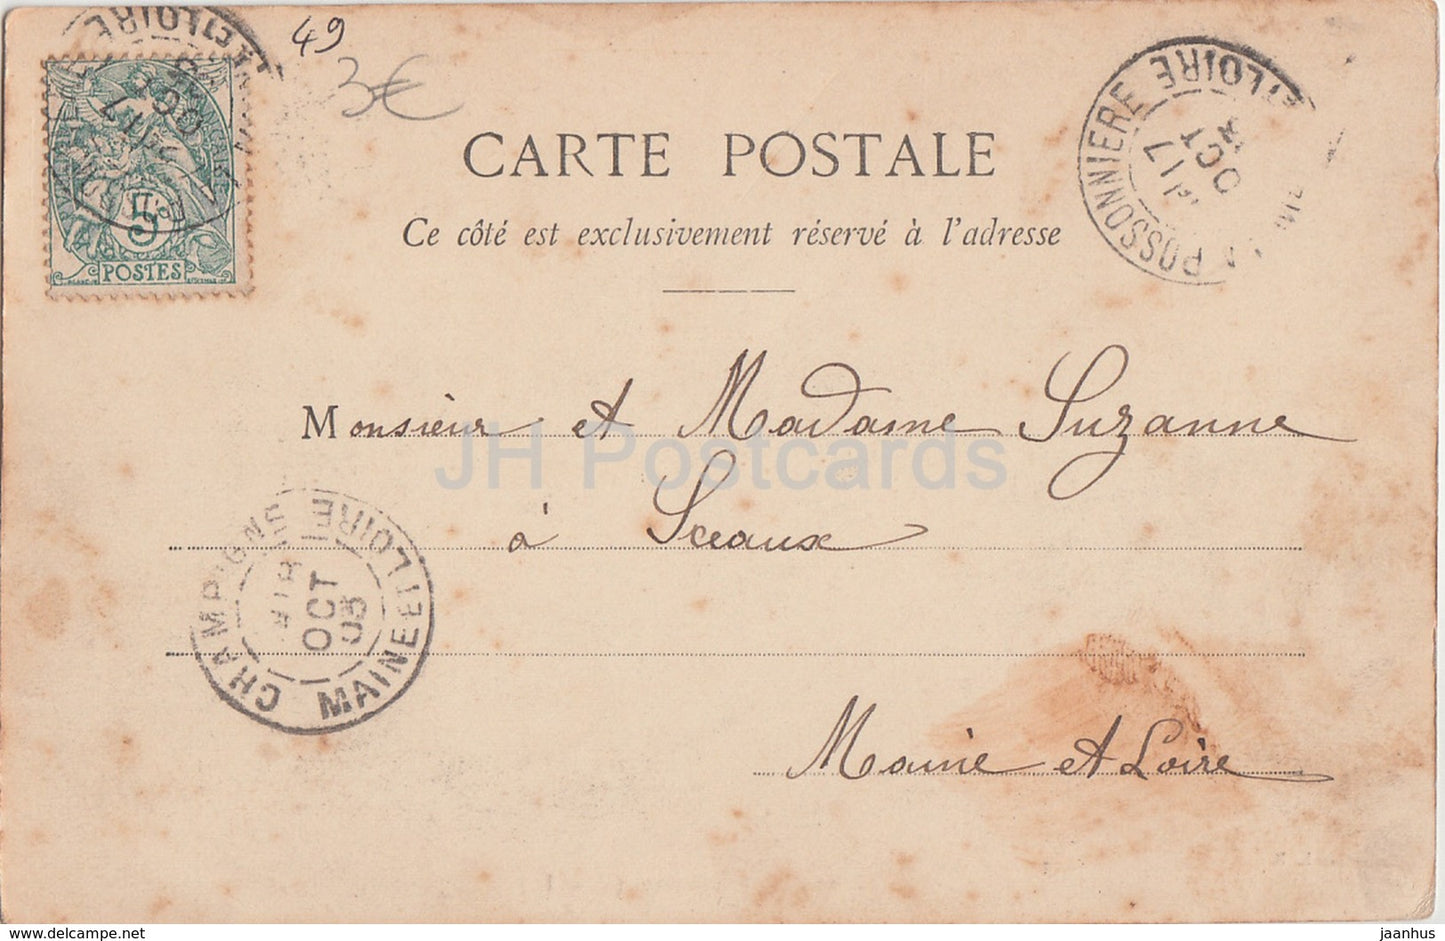 49
3€
5
POSTES
LA POSSONNIERE MAINE-ET-LOIRE
17
OCT
CARTE POSTALE
Ce côté est exclusivement réservé à l'adresse
Monsieur et Madame Suzanne
à Sceaux
Maine et Loire
CHAMPIGNE MAINE ET LOIRE
18
OCT
05
JH Postcards
delcampe.net
jaanhus